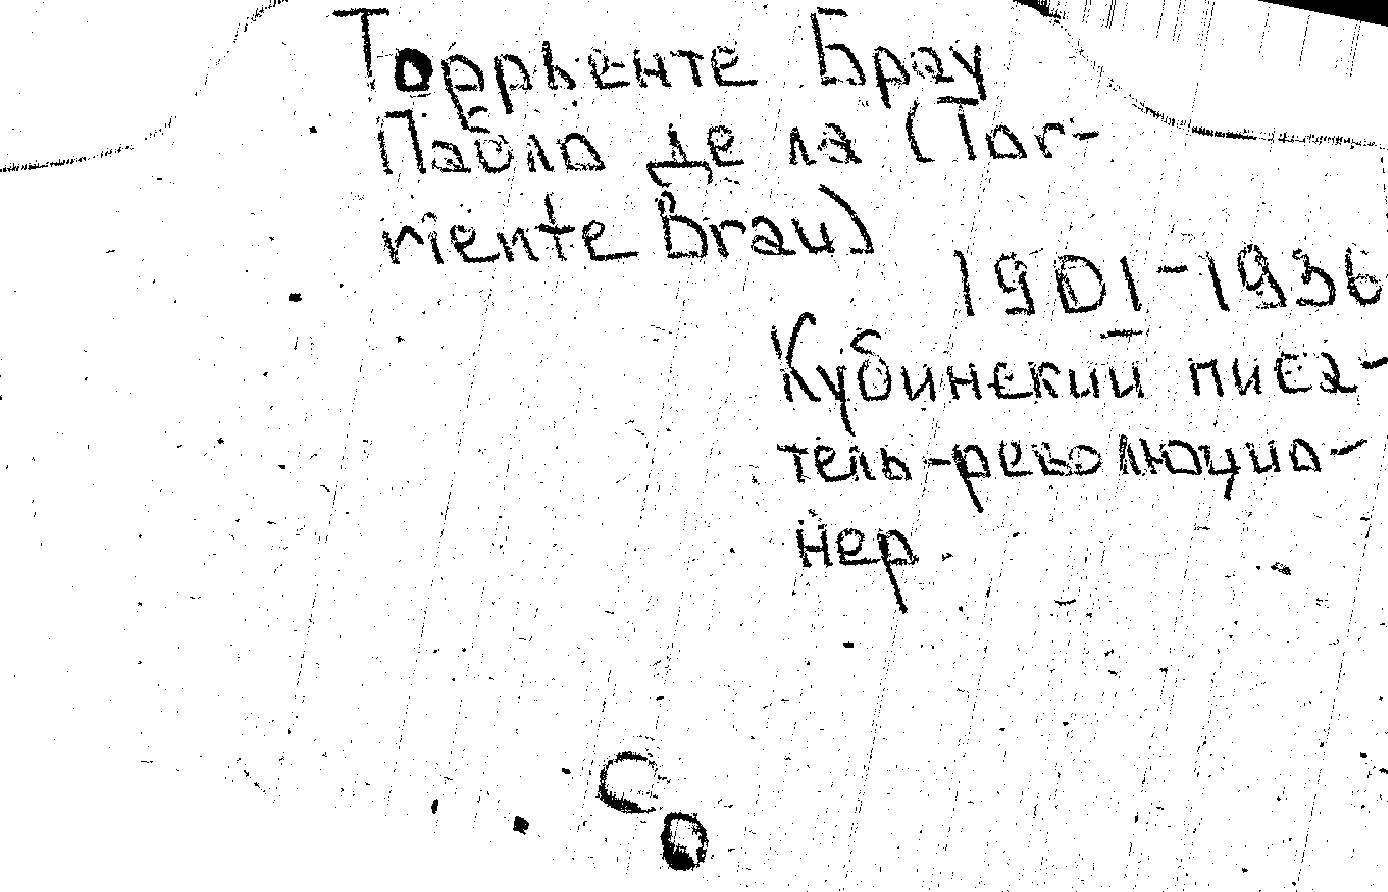 Торрьенте Брау
Пабло де ла (Tor-
riente Brau)
1901-1936
Кубинский писа-
тель-революцио-
нер